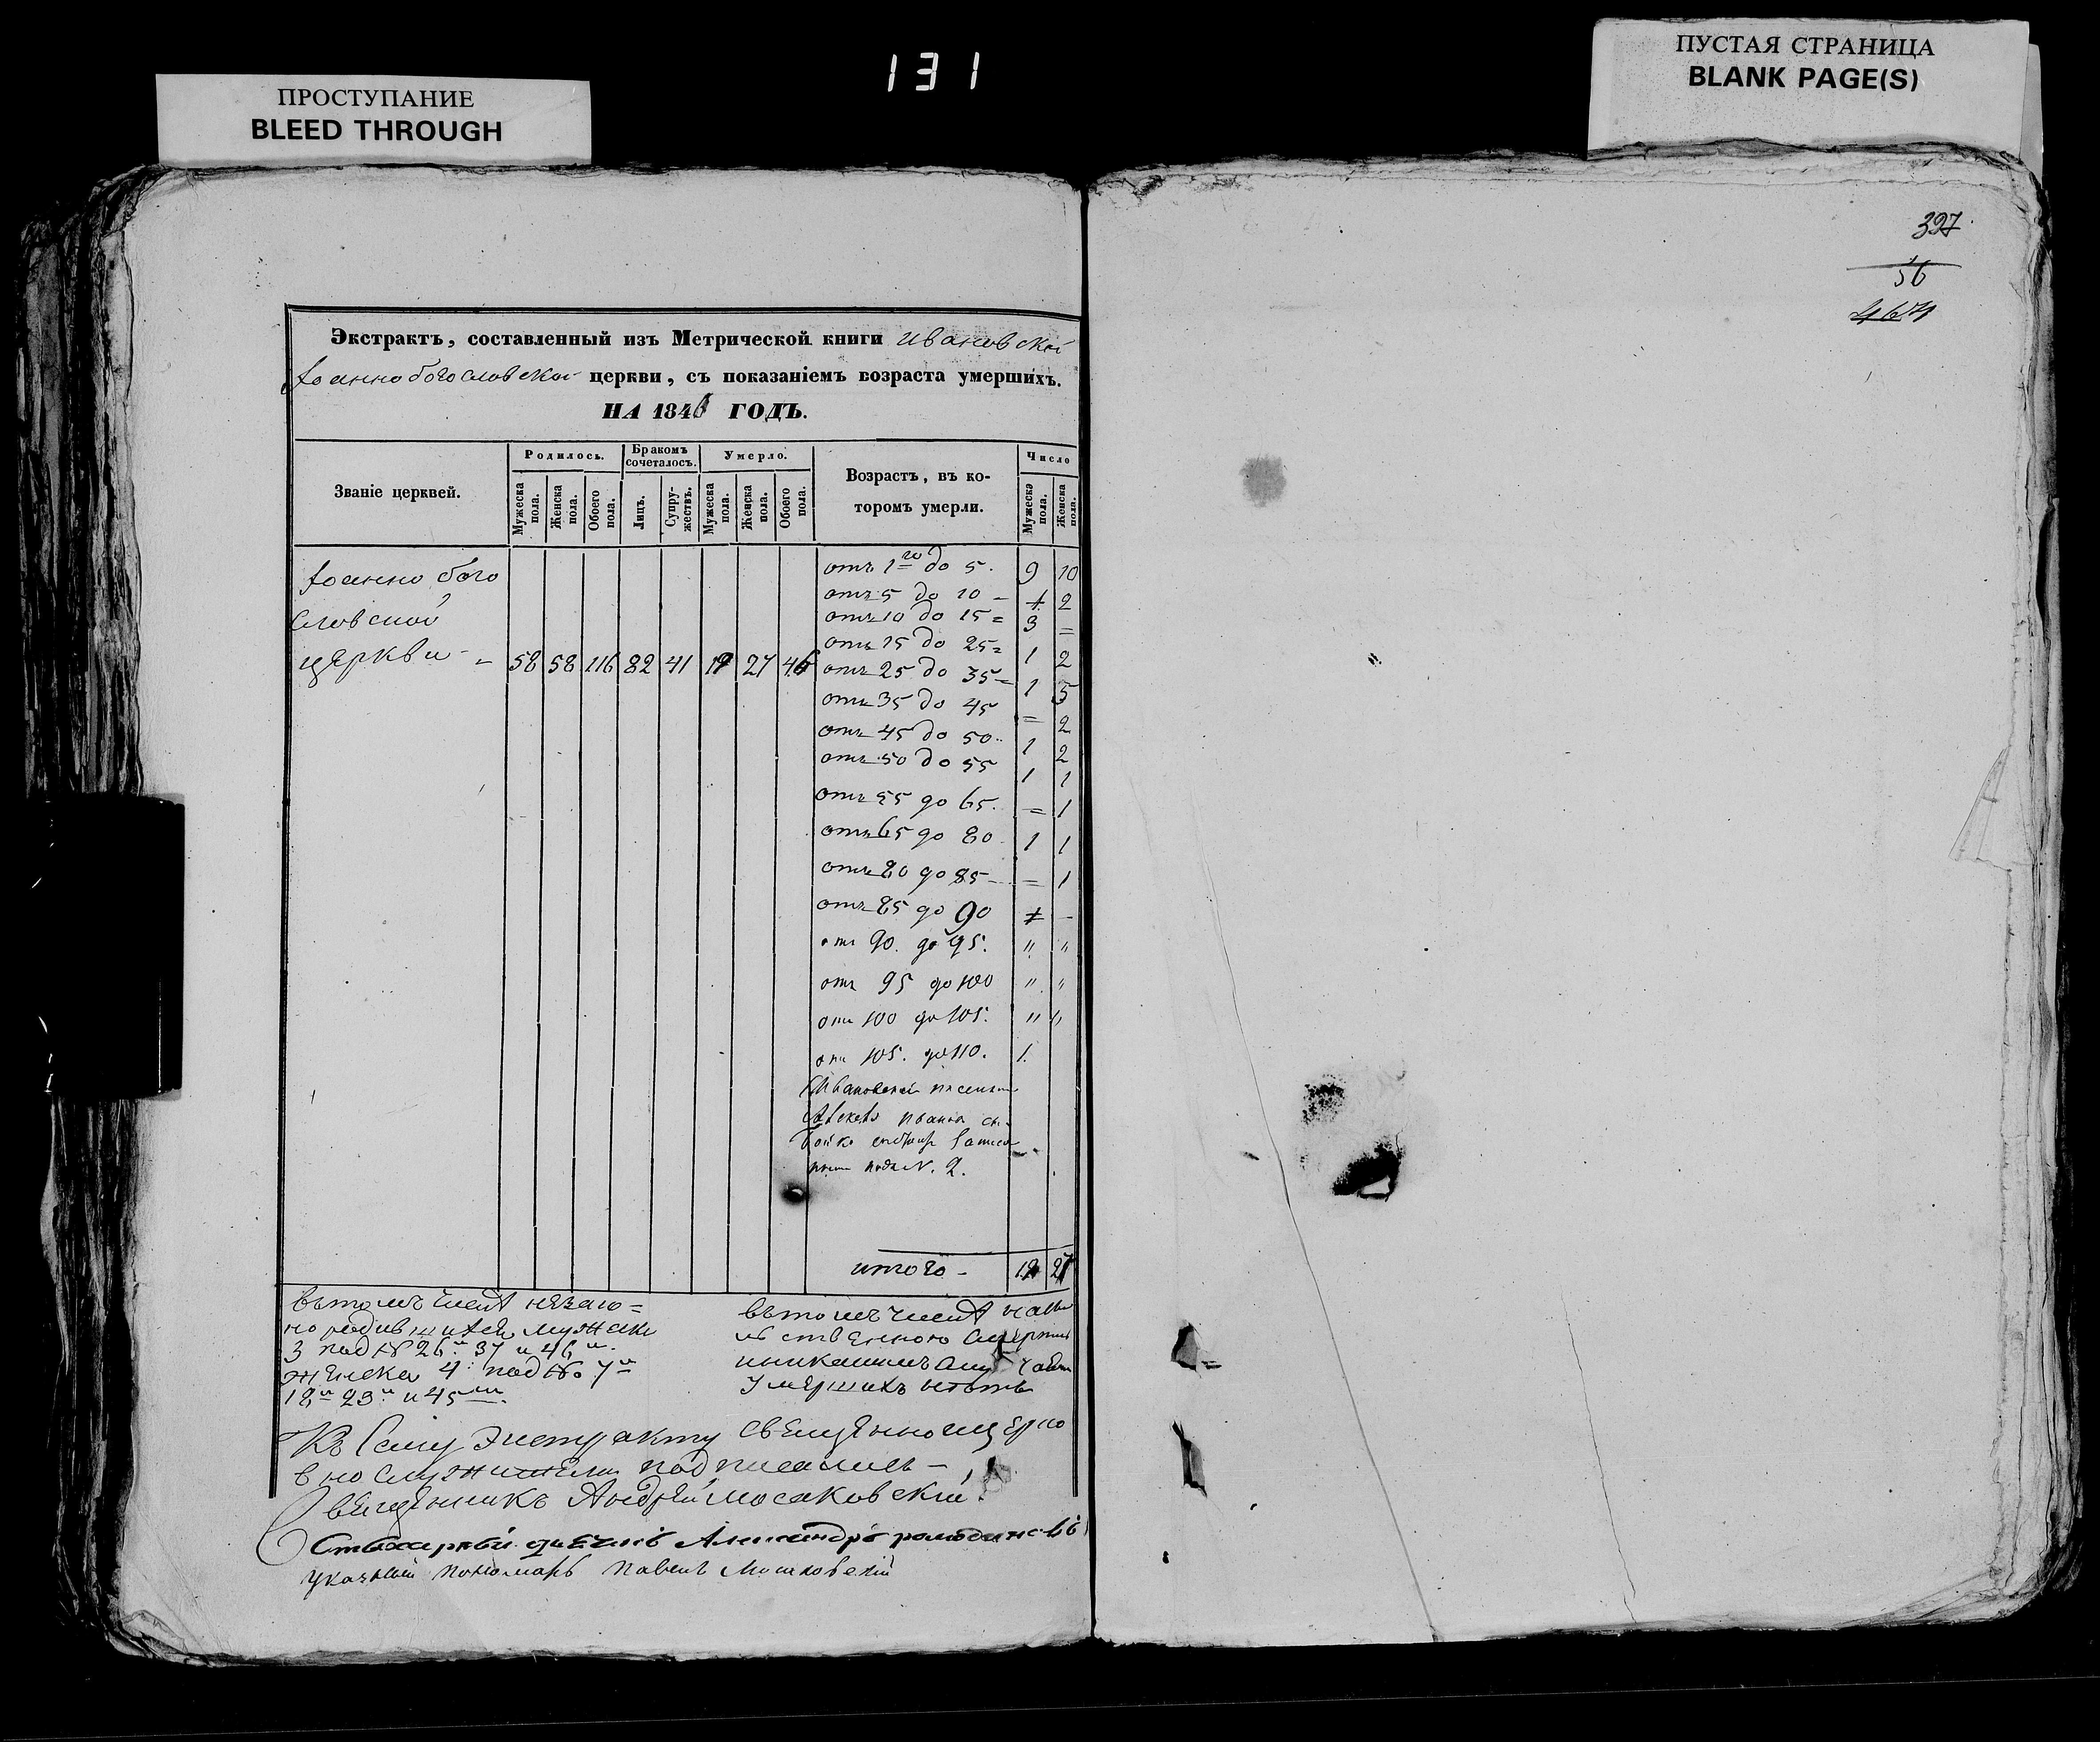 131
ПРОСТУПАНИЕ
BLEED THROUGH
ПУСТАЯ СТРАНИЦА
BLANK PAGE(S)
397
56
Экстрактъ, составленный изъ Метрической книги Ивановской
Іоаннобогословской церкви, съ показаніемъ возраста умершихъ.
НА 1846 ГОДЪ.
Званіе церквей.
Родилось.
Бракомъ сочеталось.
Умерло.
Возрастъ, въ которомъ умерли.
Число
Мужеска пола.
Женска пола.
Обоего пола.
Лицъ.
Супружествъ.
Мужеска пола.
Женска пола.
Обоего пола.
Мужеска пола.
Женска пола.
Іоанно бого
словской
церкви - 58 58 116 82 41 19 27 46
отъ 1го до 5. 9 10
отъ 5 до 10 - 2
отъ 10 до 15 = 3 =
отъ 15 до 25 = 1 2
отъ 25 до 35 - 1 5
отъ 35 до 45 = 2
отъ 45 до 50 1 2
отъ 50 до 55 1 1
отъ 55 до 65. = 1
отъ 65 до 80 1 1
отъ 80 до 85 - = 1
отъ 85 до 90 -
отъ 90. до 95. " "
отъ 95 до 100 " "
отъ 100 до 105. " "
отъ 105. до 110. 1.
подъ N. 2.
итого - 27
въ томъ числѣ незако=
но родившихся мужска
3 под № 26и 37 и 46и.
женска 4: под № 7и
18и 23и и 45
въ томъ числѣ
умершихъ нѣтъ
Къ сему экстракту священноцерко
вно служители подписались -
Священникъ Андрей Мосаковскій.
Стихарный дьячикъ Александръ
указный пономарь Павелъ